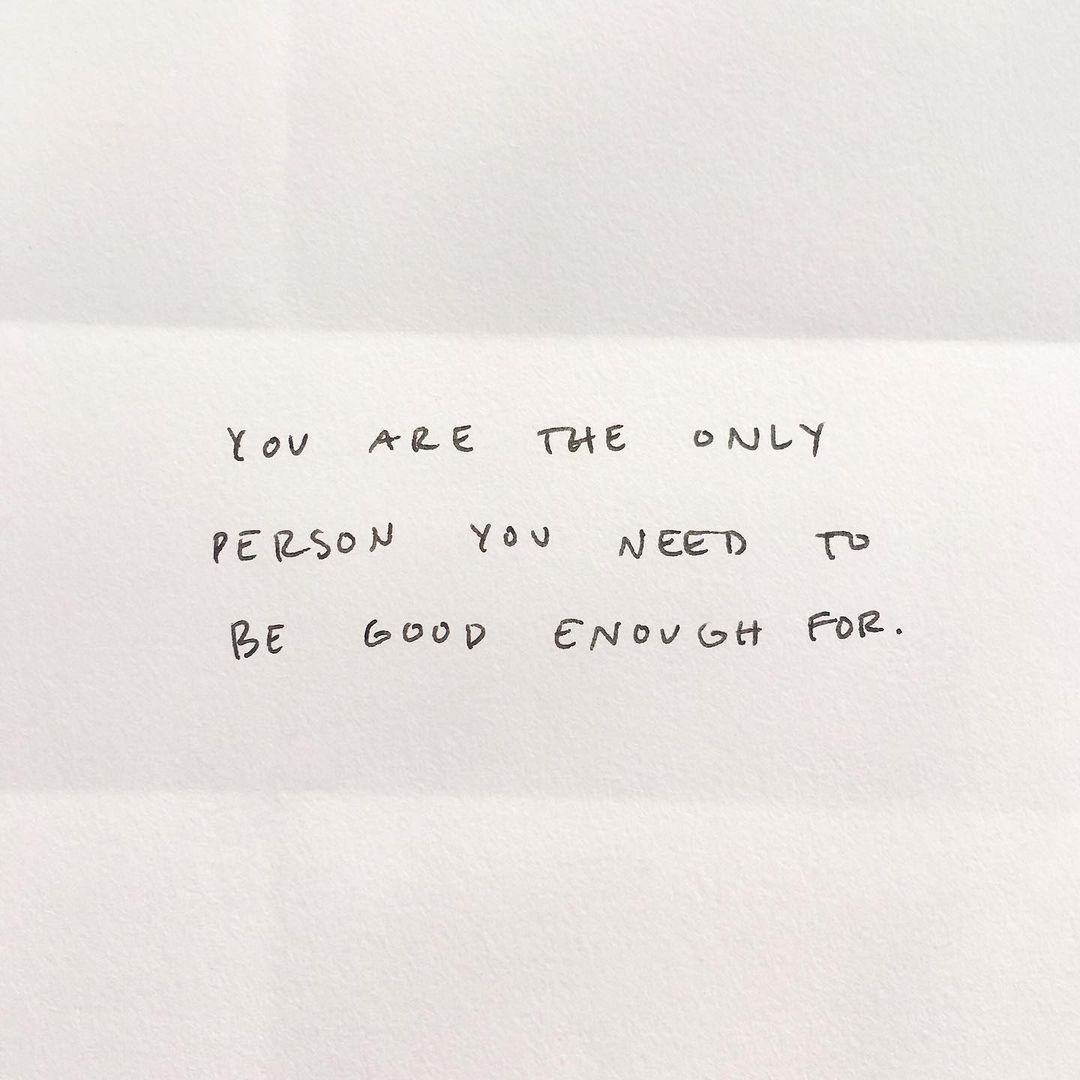 YOU ARE THE ONLY
PERSON YOU NEED TO
BE GOOD ENOUGH FOR.